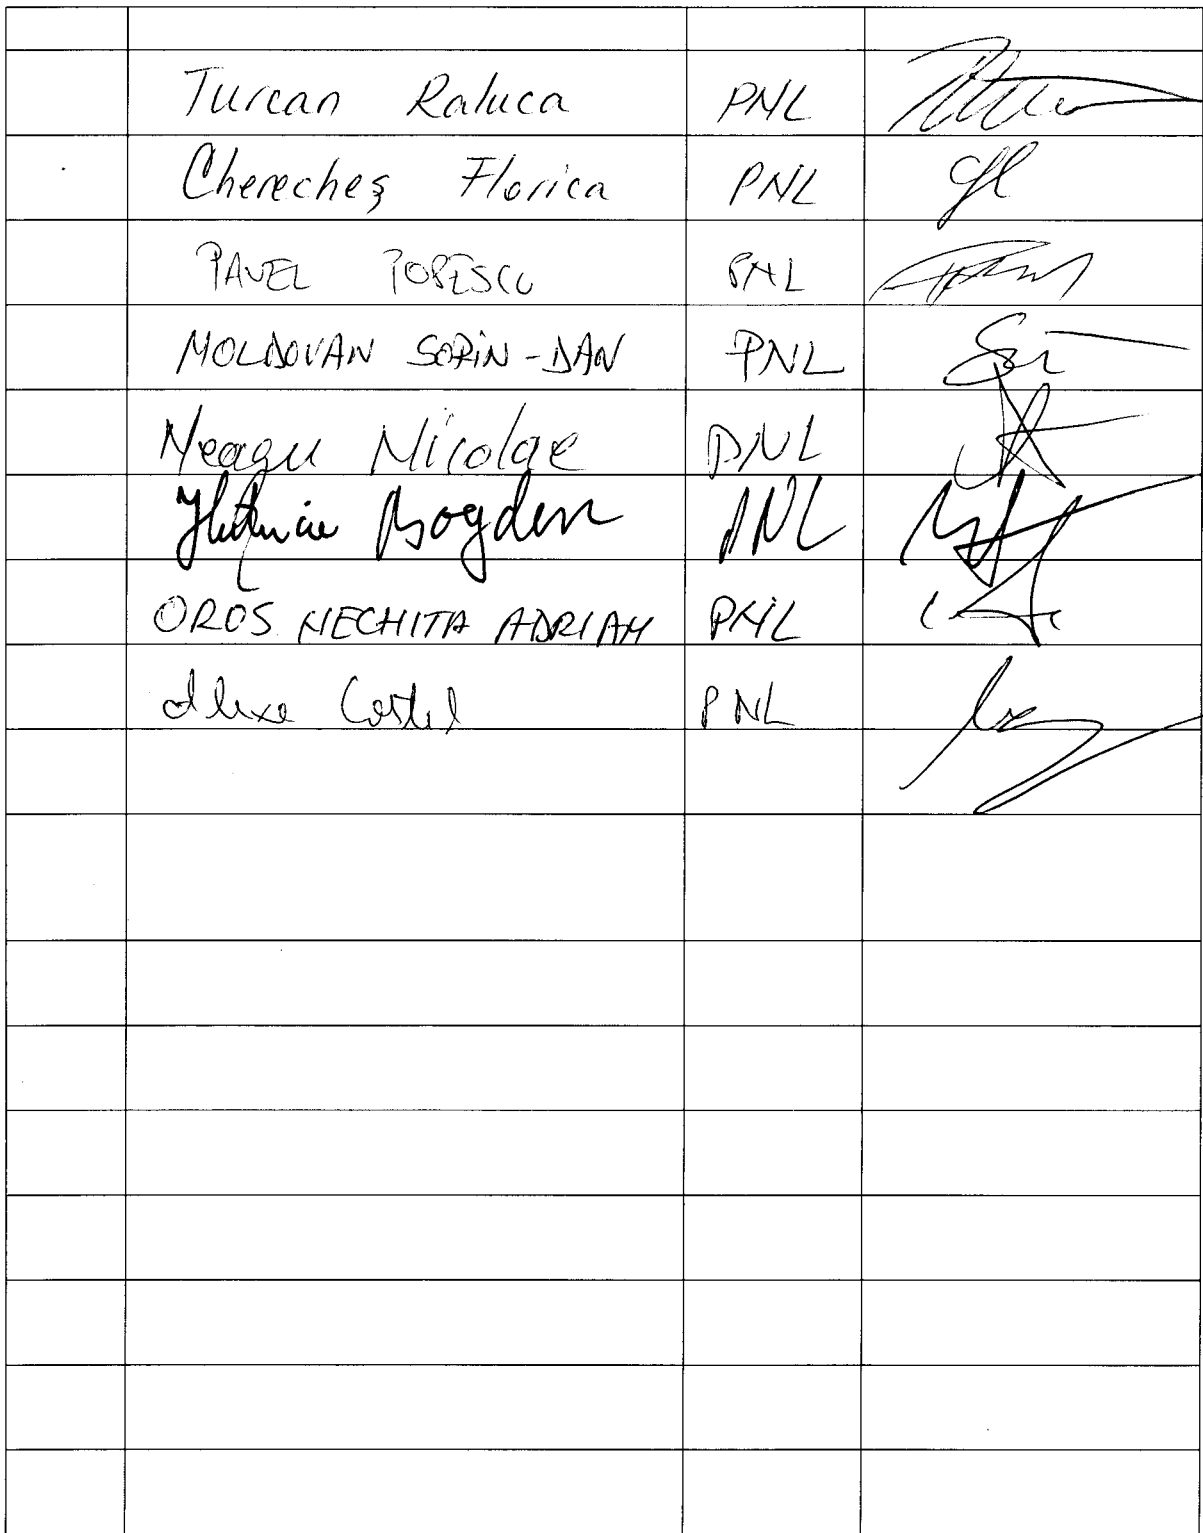 Turcan Raluca PNL
Cherecheș Florica PNL
PAVEL POPESCU PNL
MOLDOVAN SORIN-DAN PNL
Neagu Nicolae PNL
Bogdan PNL
OROS NECHITA ADRIAN PNL
Alexe Costel PNL